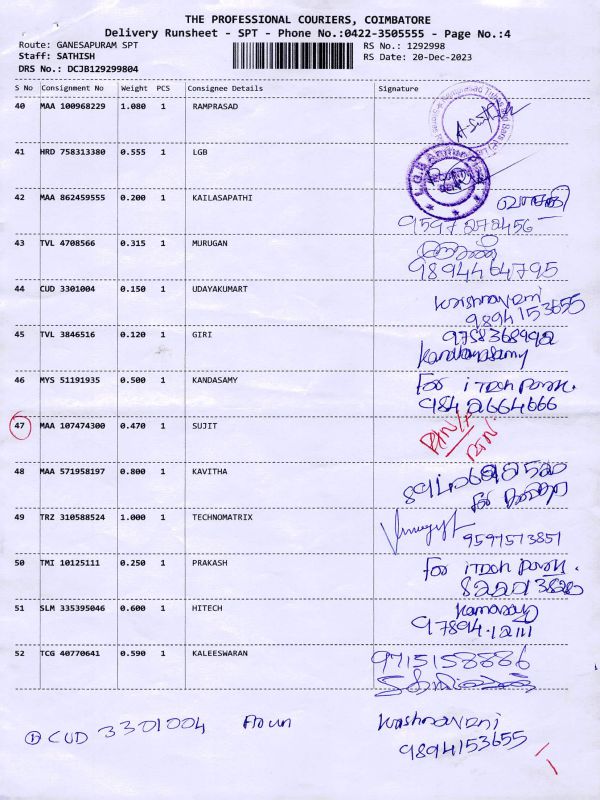 THE PROFESSIONAL COURIERS, COIMBATORE
Delivery Runsheet - SPT - Phone No.:0422-3505555 - Page No.:4
Route: GANESAPURAM SPT
RS No.: 1292998
Staff: SATHISH
RS Date: 20-Dec-2023
DRS No.: DCJB129299804
S No Consignment No Weight PCS Consignee Details Signature
40 MAA 100968229 1.080 1 RAMPRASAD
41 HRD 758313380 0.555 1 LGB
SECURITY
42 MAA 862459555 0.200 1 KAILASAPATHI
9597272456
43 TVL 4708566 0.315 1 MURUGAN
9894464795
44 CUD 3301004 0.150 1 UDAYAKUMART
Krishnaveni
9894153655
45 TVL 3846516 0.120 1 GIRI
9758368992
Kandhasamy
46 MYS 51191935 0.500 1 KANDASAMY
for iTech Park.
9842664666
47 MAA 107474300 0.470 1 SUJIT
RTN
48 MAA 571958197 0.800 1 KAVITHA
for
49 TRZ 310588524 1.000 1 TECHNOMATRIX
9597573857
50 TMI 10125111 0.250 1 PRAKASH
for iTech Park.
51 SLM 335395046 0.600 1 HITECH
97894.12111
52 TCG 40770641 0.590 1 KALEESWARAN
9715158886
① CUD 3301004 Arun Krishnaveni
9894153655